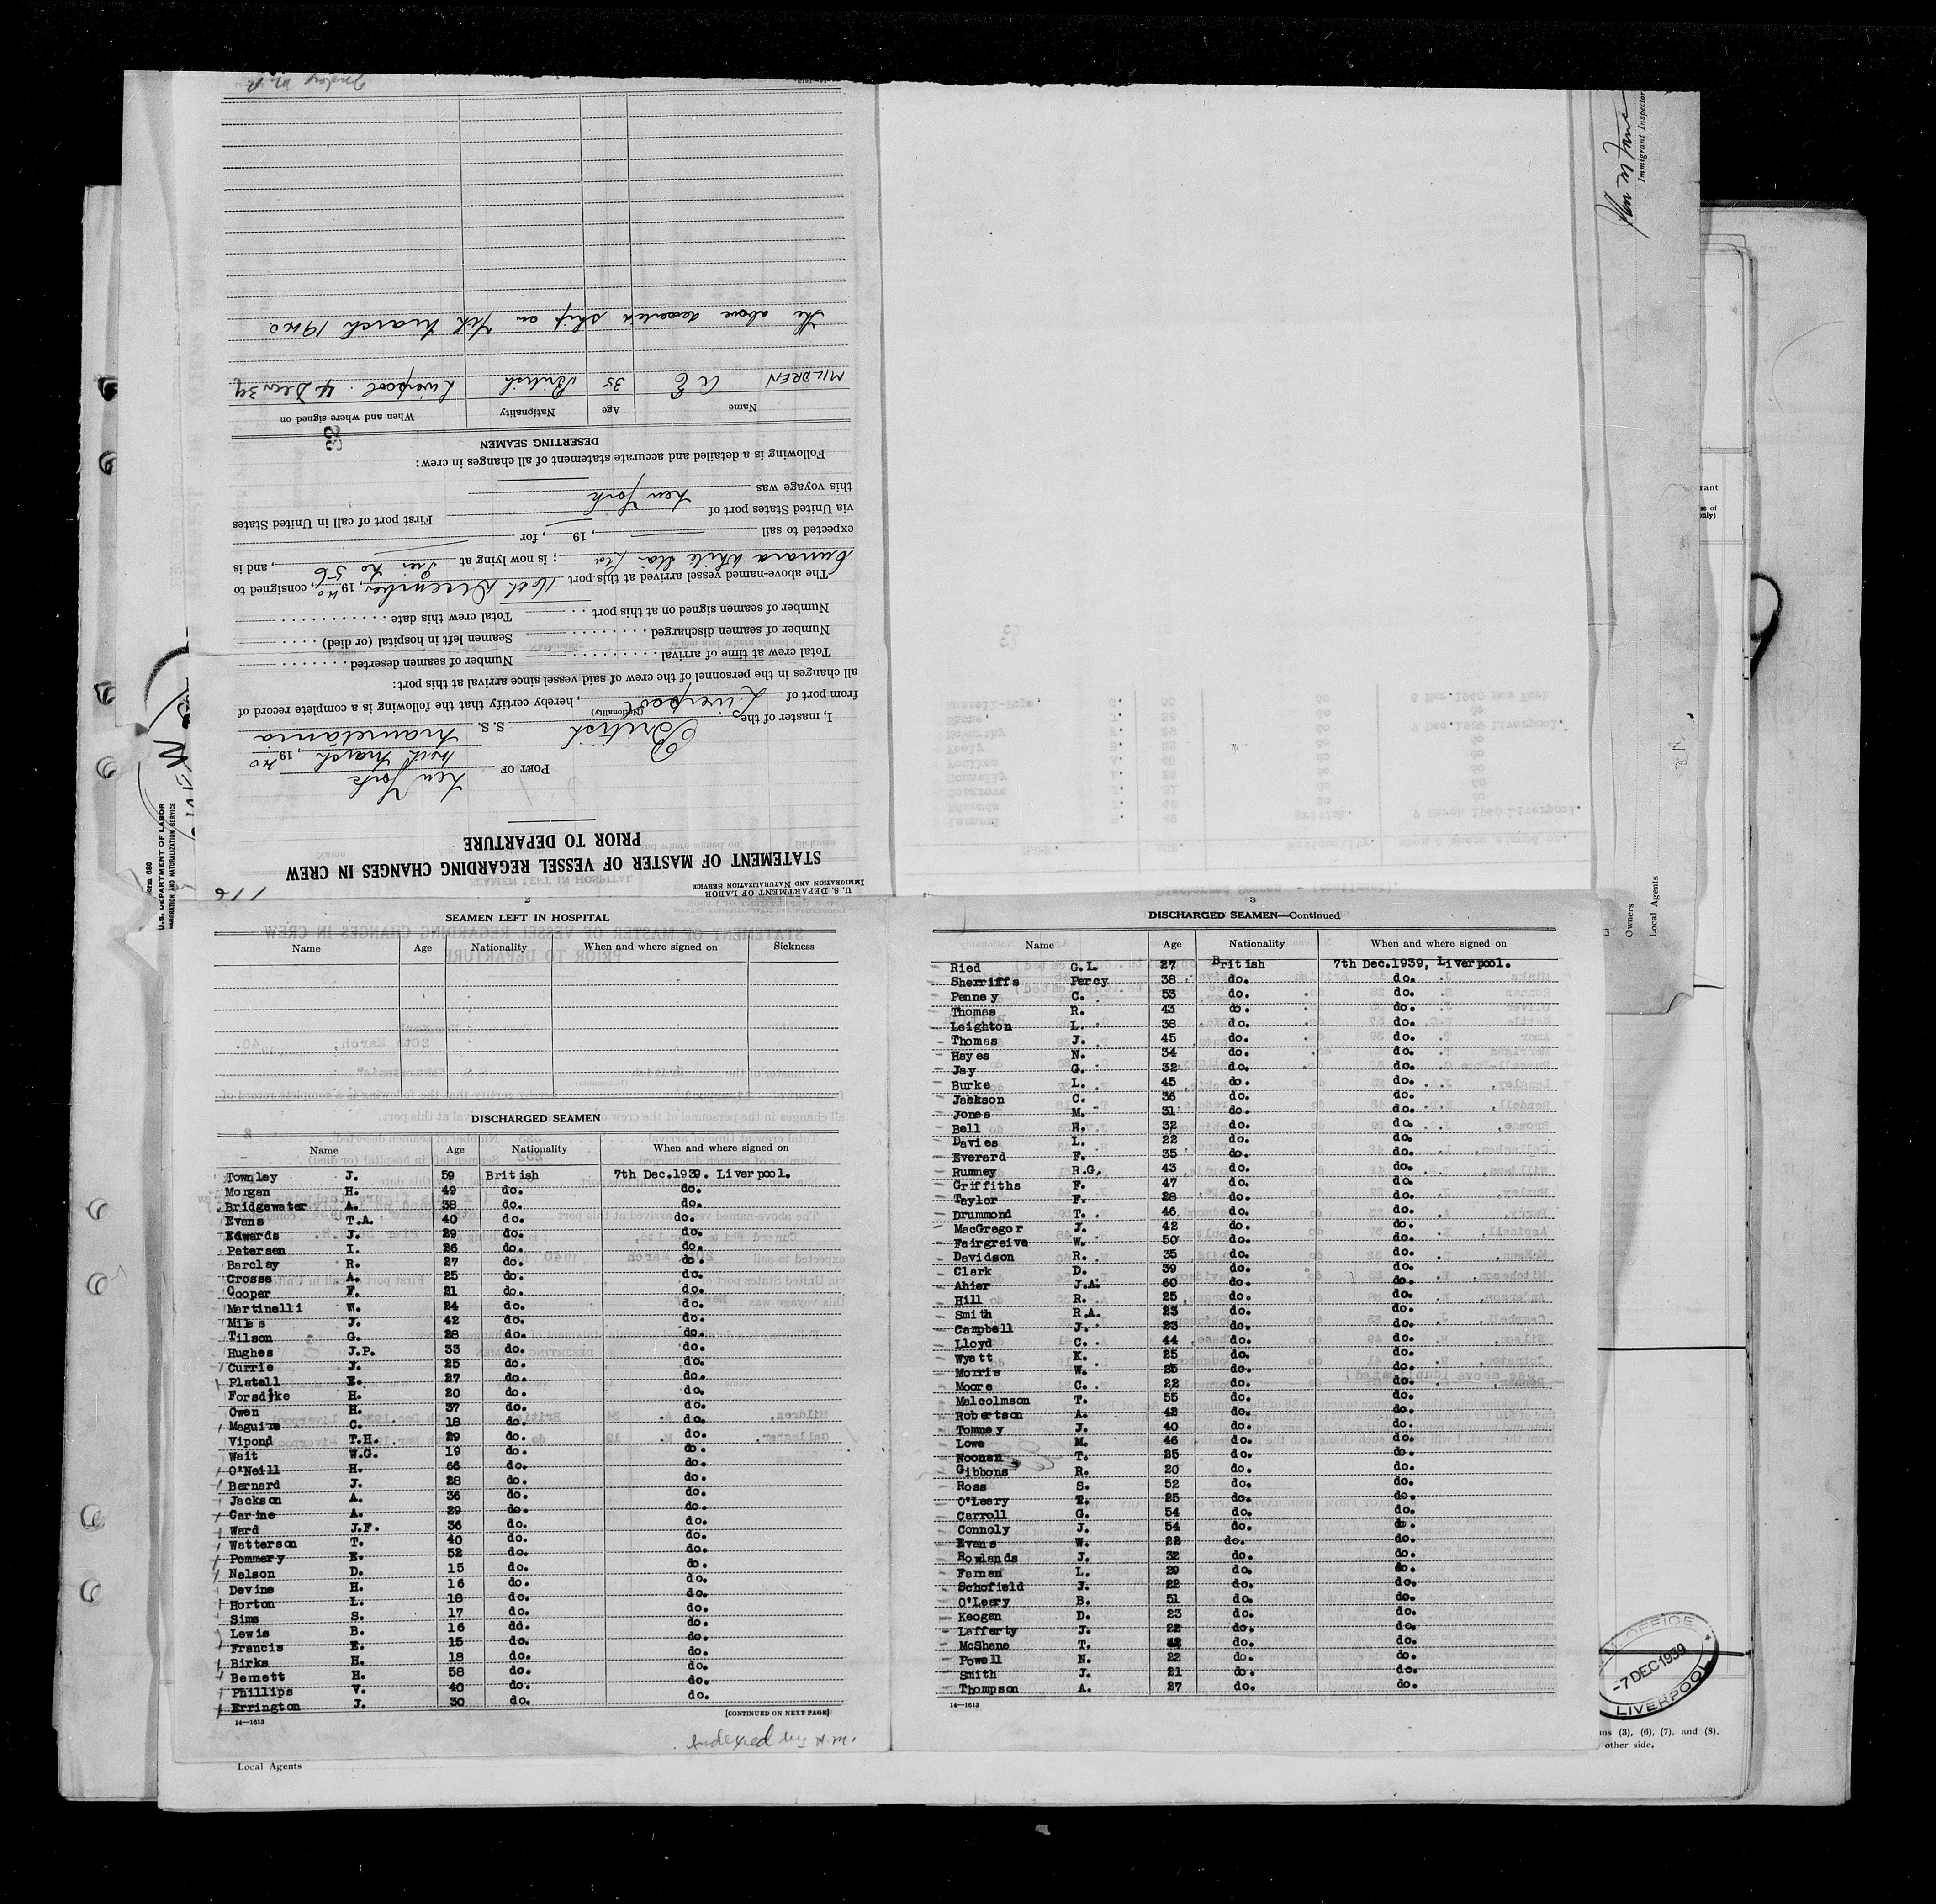 U. S. DEPARTMENT OF LABOR
IMMIGRATION AND NATURALIZATION SERVICE
STATEMENT OF MASTER OF VESSEL REGARDING CHANGES IN CREW
PRIOR TO DEPARTURE
PORT OF New York
March, 1940
I, master of the British S. S. Mauretania
(Nationality)
from port of Liverpool, hereby certify that the following is a complete record of
all changes in the personnel of the crew of said vessel since arrival at this port:
Total crew at time of arrival Number of seamen deserted
Number of seamen discharged Seamen left in hospital (or died)
Number of seamen signed on at this port Total crew this date
The above-named vessel arrived at this port 16th December, 1940, consigned to
Cunard White Star Ltd; is now lying at Pier No 56, and is
expected to sail , 19 , for
via United States port of First port of call in United States
this voyage was New York
Following is a detailed and accurate statement of all changes in crew:
DESERTING SEAMEN
Name Age Nationality When and where signed on
MILDREN A E 35 British Liverpool. 4 Decr 39
The above deserted ship on 7th March 1940
2
SEAMEN LEFT IN HOSPITAL
Name Age Nationality When and where signed on Sickness
DISCHARGED SEAMEN
Name Age Nationality When and where signed on
Townley J. 59 British 7th Dec.1939. Liverpool.
Morgan H. 49 do. do.
Bridgewater A. 38 do. do.
Evans T.A. 40 do. do.
Edwards J. 29 do. do.
Petersen I. 26 do. do.
Barclay R. 27 do. do.
Crosse A. 25 do. do.
Cooper F. 21 do. do.
Martinelli W. 24 do. do.
Miles J. 42 do. do.
Tilson G. 28 do. do.
Hughes J.P. 33 do. do.
Currie J. 25 do. do.
Platell E. 27 do. do.
Forsdike H. 20 do. do.
Owen H. 37 do. do.
Maguire C. 18 do. do.
Vipond T.H. 29 do. do.
Wait W.G. 19 do. do.
O'Neill H. 66 do. do.
Bernard J. 28 do. do.
Jackson A. 36 do. do.
Carine A. 29 do. do.
Ward J.F. 36 do. do.
Watterson T. 40 do. do.
Pommery E. 52 do. do.
Nelson D. 15 do. do.
Devine H. 16 do. do.
Horton L. 18 do. do.
Sims S. 17 do. do.
Lewis B. 16 do. do.
Francis E. 15 do. do.
Birks H. 18 do. do.
Bennett H. 58 do. do.
Phillips V. 40 do. do.
Errington J. 30 do. do.
14—1613 [CONTINUED ON NEXT PAGE]
Indexed by N.M.
Local Agents
3
DISCHARGED SEAMEN—Continued
Name Age Nationality When and where signed on
Ried G.L. 27 British 7th Dec.1939, Liverpool.
Sherriffs Percy 38 do. do.
Penney C. 53 do. do.
Thomas R. 43 do. do.
Leighton L. 38 do. do.
Thomas J. 45 do. do.
Hayes N. 34 do. do.
Jay G. 32 do. do.
Burke L. 45 do. do.
Jackson C. 36 do. do.
Jones M. 31 do. do.
Bell H. 32 do. do.
Davies L. 22 do. do.
Everard F. 35 do. do.
Rumney R.G. 43 do. do.
Griffiths F. 47 do. do.
Taylor F. 28 do. do.
Drummond T. 46 do. do.
MacGregor J. 42 do. do.
Fairgreive W. 50 do. do.
Davidson R. 35 do. do.
Clark D. 39 do. do.
Ahier J.A. 60 do. do.
Hill R. 25 do. do.
Smith R.A. 23 do. do.
Campbell J. 23 do. do.
Lloyd C. 44 do. do.
Wyatt K. 25 do. do.
Morris W. 25 do. do.
Moore C. 22 do. do.
Malcolmson T. 55 do. do.
Robertson A. 42 do. do.
Tomney J. 40 do. do.
Lowe M. 46 do. do.
Noonan T. 25 do. do.
Gibbons R. 20 do. do.
Ross S. 52 do. do.
O'Leary T. 25 do. do.
Carroll G. 54 do. do.
Connoly J. 54 do. do.
Evans W. 22 do. do.
Rowlands J. 32 do. do.
Farnan L. 29 do. do.
Schofield J. 22 do. do.
O'Leary B. 51 do. do.
Keogan D. 23 do. do.
Lafferty J. 22 do. do.
McShane T. 42 do. do.
Powell N. 22 do. do.
Smith J. 21 do. do.
Thompson A. 27 do. do.
14—1613
Immigrant Inspector
Owners
Local Agents
Form 680
U.S. DEPARTMENT OF LABOR
IMMIGRATION AND NATURALIZATION SERVICE
OFFICE
-7 DEC 1939
LIVERPOOL
(3), (6), (7), and (8).
other side.